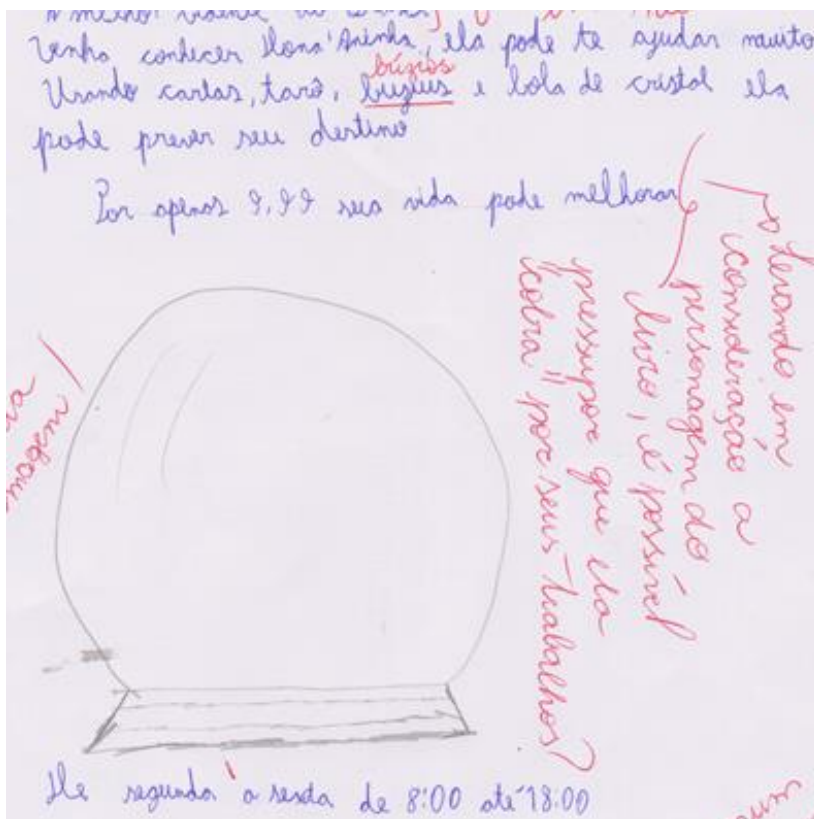 venha conhecer Dona Aninha, ela pode te ajudar muito
búzios
Usando cartas, tarô, buzius e bola de cristal ela
pode prever seu destino
Por apenas 9,99 sua vida pode melhorar
Levando em
consideração a
personagem do
livro, é possível
pressupor que ela
"cobra" por seus trabalhos?
De segunda a sexta de 8:00 até 18:00